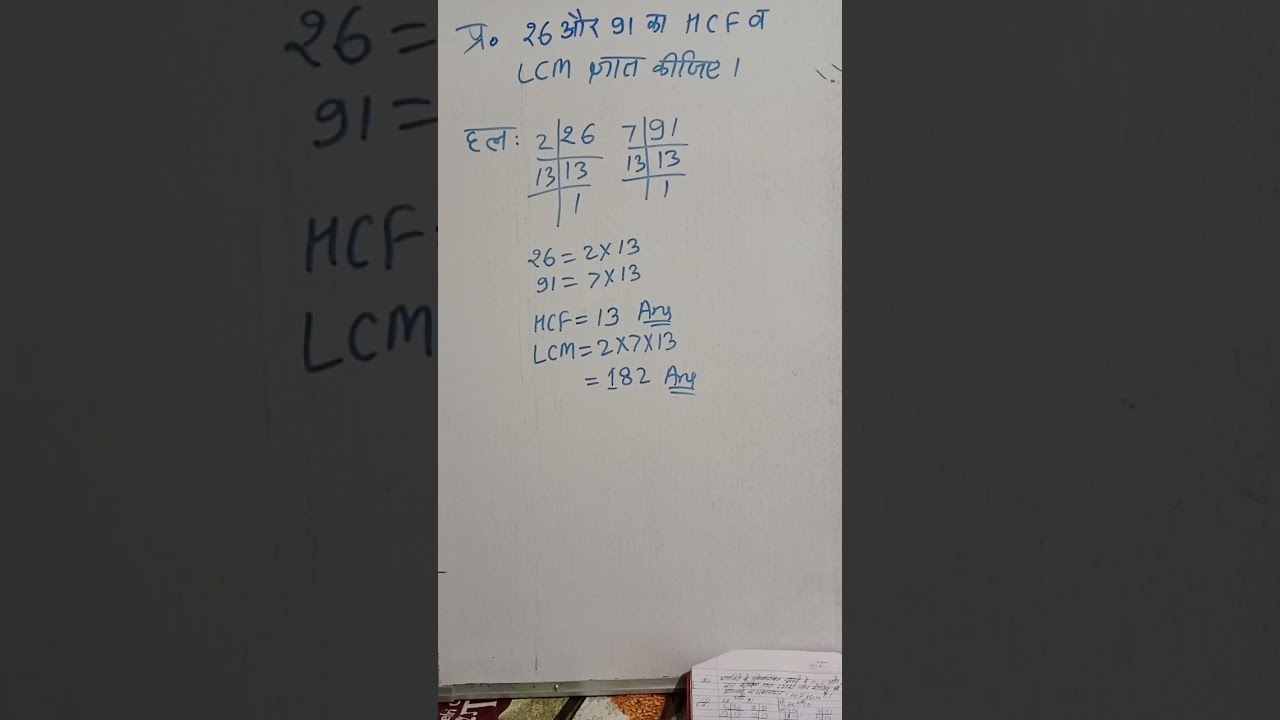 प्र० 26 और 91 का HCF व
LCM ज्ञात कीजिए।
हल: 2 | 26 7 | 91
13 | 13 13 | 13
1 1
26 = 2 × 13
91 = 7 × 13
HCF = 13 Ans
LCM = 2 × 7 × 13
= 182 Ans
26 =
91 =
HCF
LCM